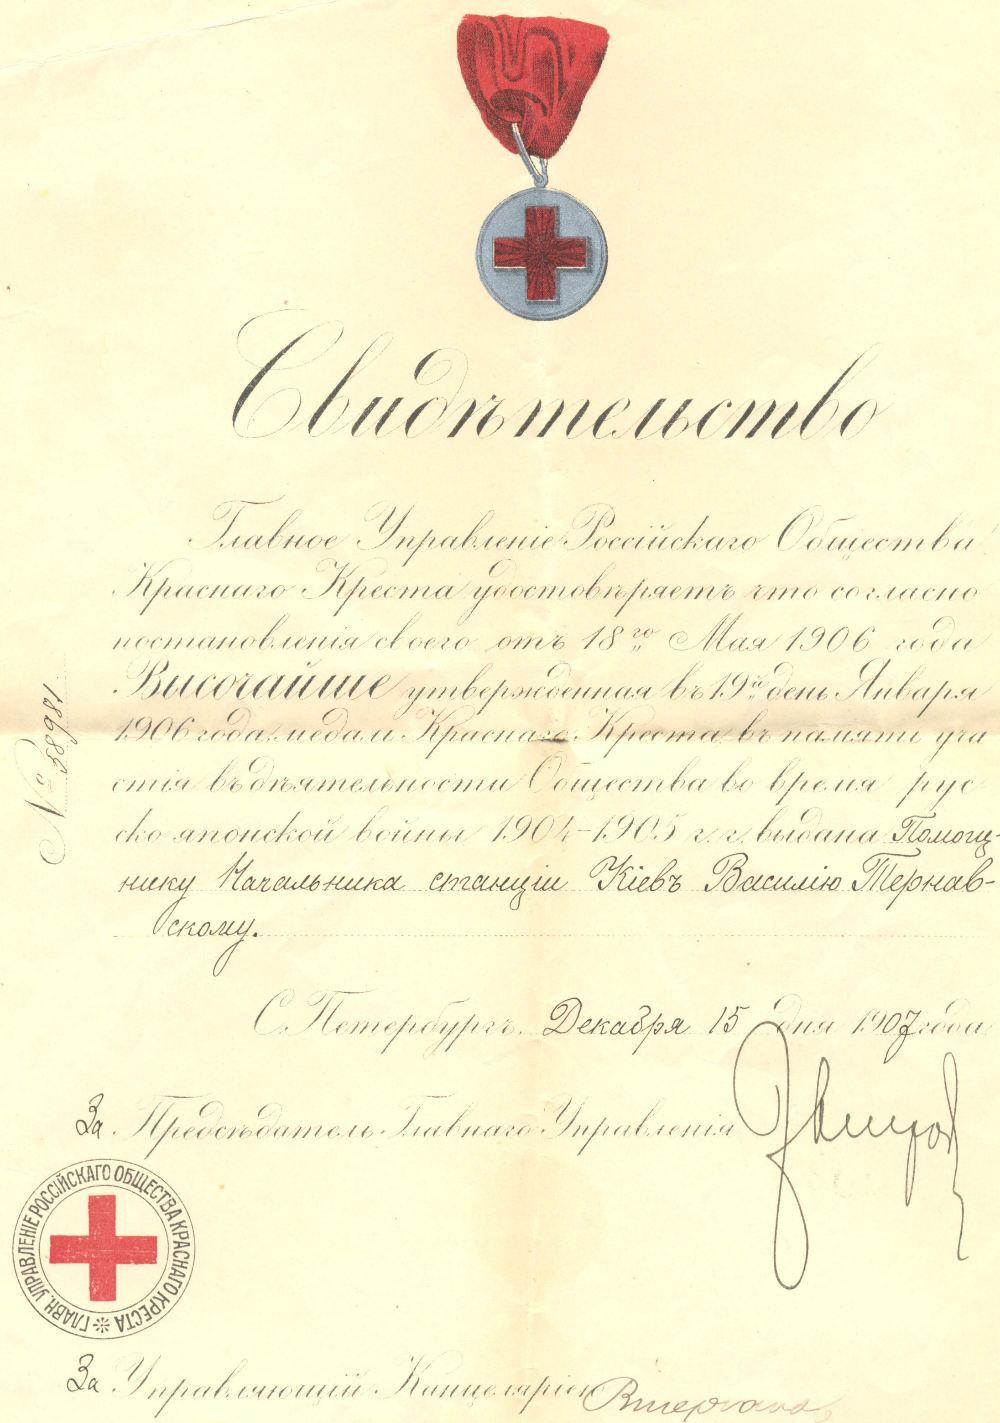 Свидѣтельство
Главное Управленіе Россійскаго Общества
Краснаго Креста удостовѣряетъ что согласно
постановленія своего отъ 18го Мая 1906 года
Высочайше утвержденная въ 19й день Января
1906 года медаль Краснаго Креста въ память уча
стія въ дѣятельности Общества во время рус
ско японской войны 1904-1905 г.г. выдана Помощ-
нику Начальника станціи Кіевъ Василію Тернав-
скому.
№ 38981
С.Петербургъ. Декабря 15 дня 1907 года
За Предсѣдатель Главнаго Управленія
ГЛАВН. УПРАВЛЕНІЕ РОССІЙСКАГО ОБЩЕСТВА КРАСНАГО КРЕСТА
За Управляющій Канцеляріею